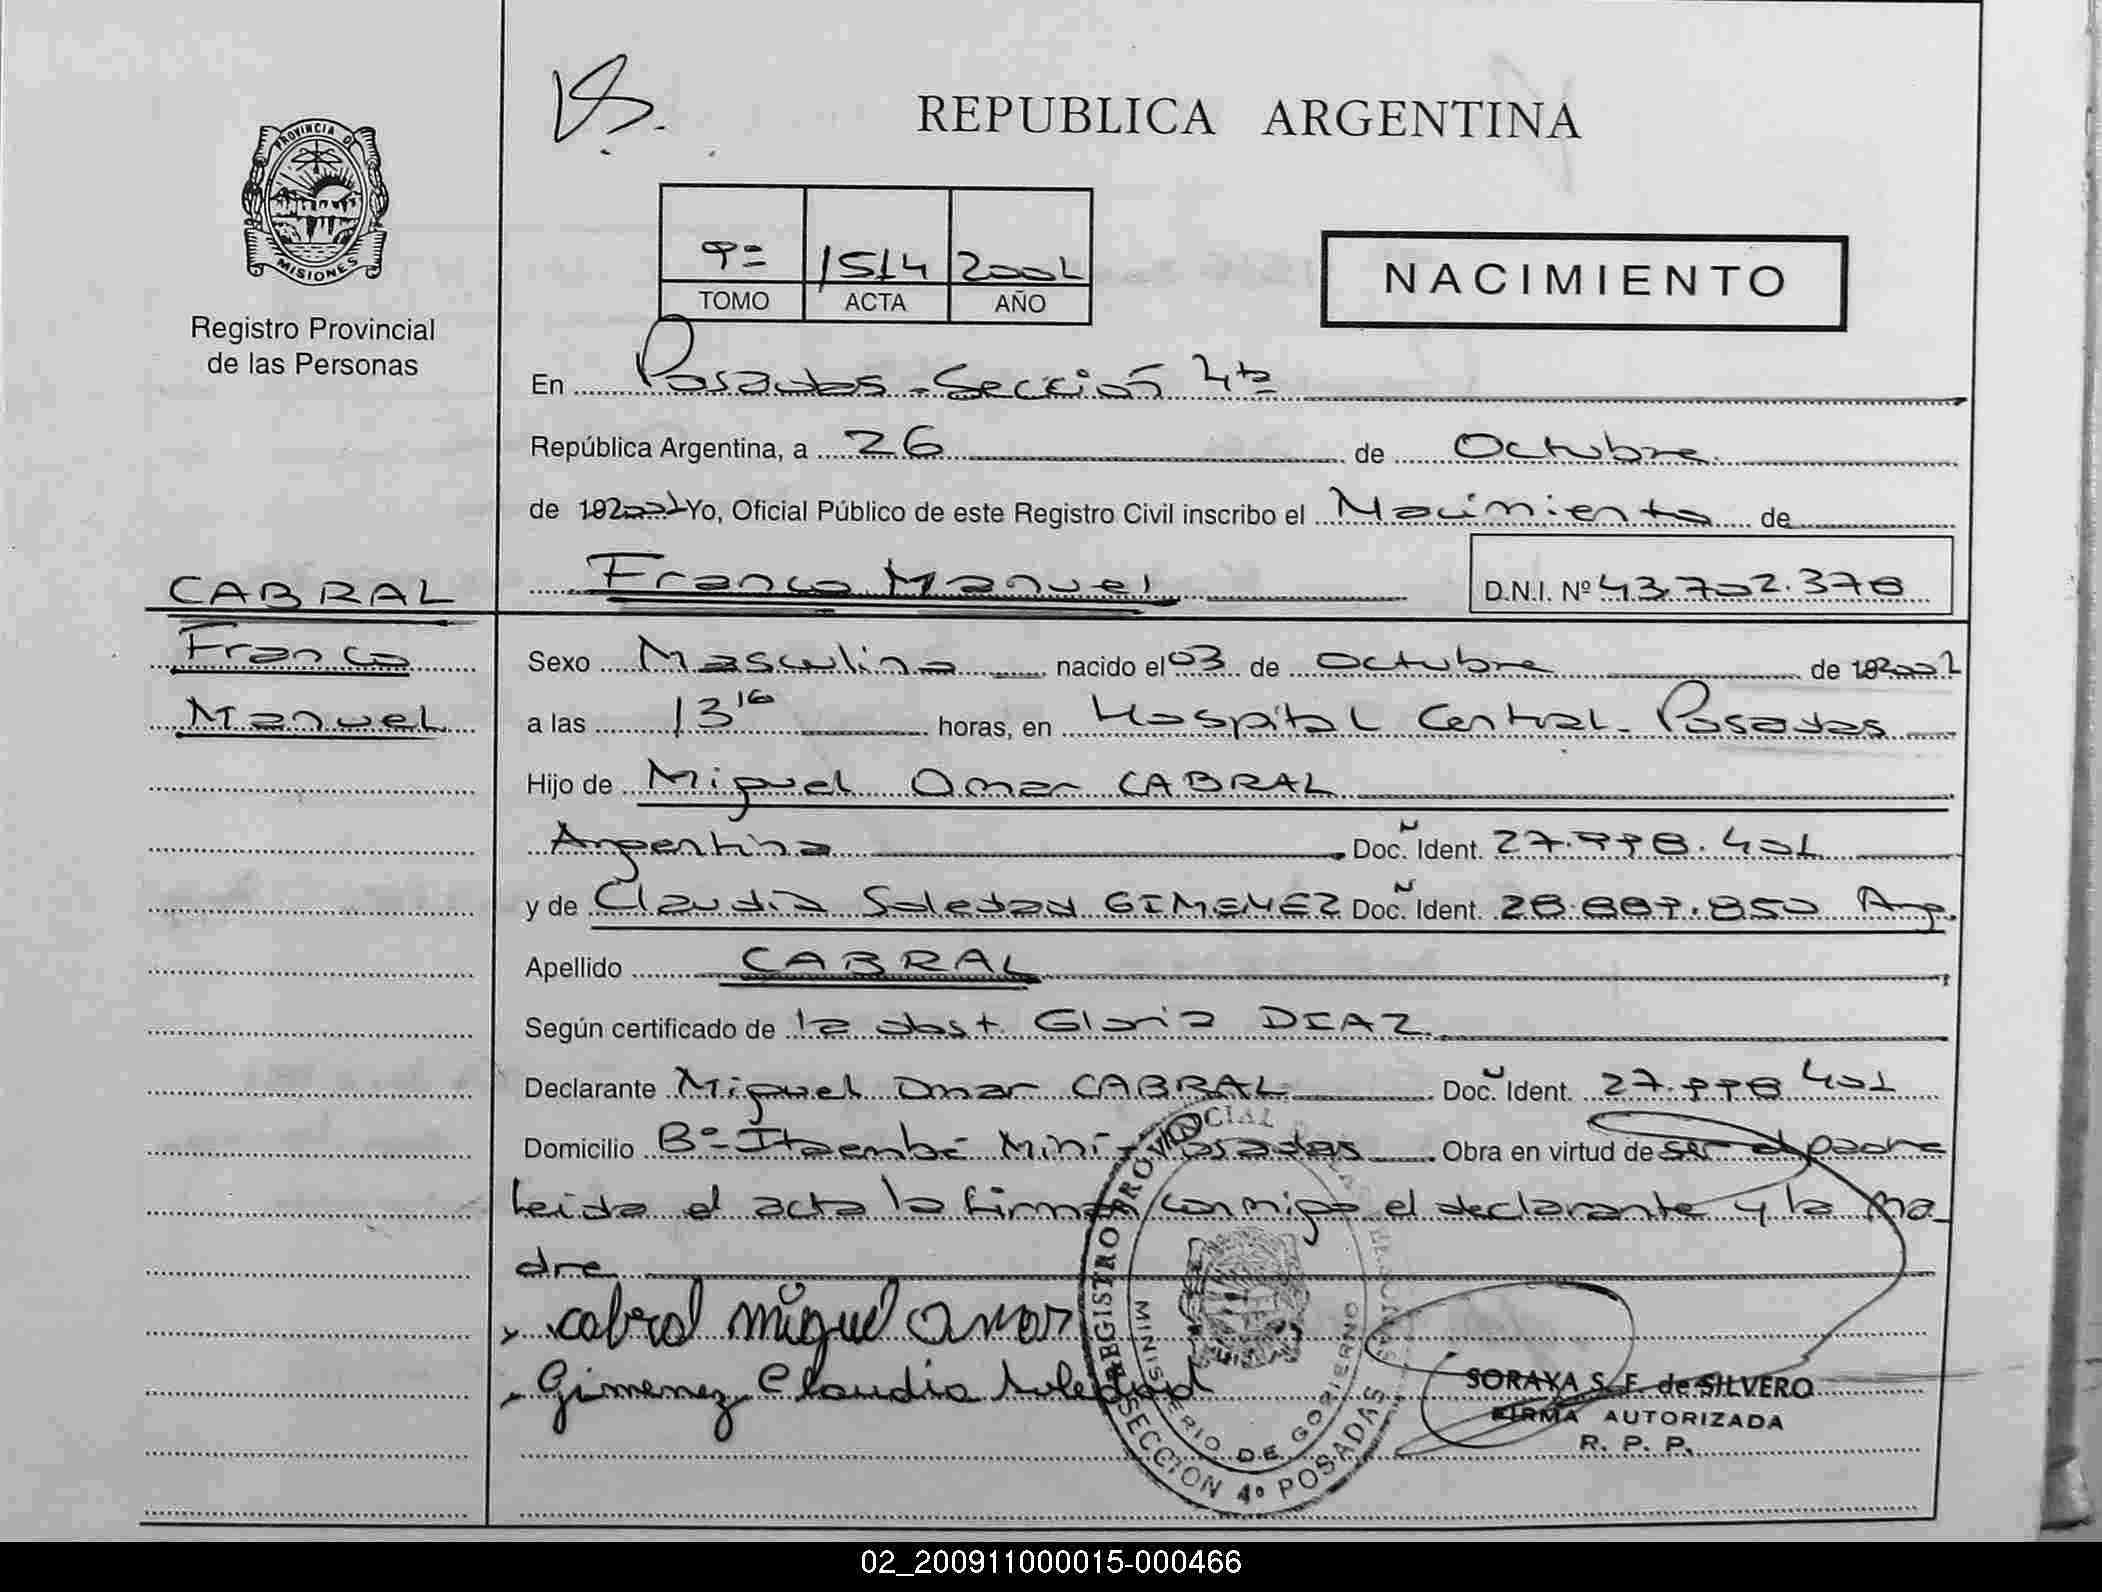 REPUBLICA ARGENTINA
PROVINCIA DE
MISIONES
Registro Provincial
de las Personas
9º 1514 2001
TOMO ACTA AÑO
NACIMIENTO
En Posadas - Sección 4ta
República Argentina, a 26 de Octubre
de 192001 Yo, Oficial Público de este Registro Civil inscribo el Nacimiento de
Franco Manuel D.N.I. Nº 43.702.378
CABRAL
Franco
Manuel
Sexo Masculino nacido el 03 de Octubre de 192001
a las 13 16 horas, en Hospital Central - Posadas
Hijo de Miguel Omar CABRAL
Argentina Doc. Ident. 27.998.401
y de Claudia Soledad GIMENEZ Doc. Ident. 28.889.850 Arg.
Apellido CABRAL
Según certificado de la obst. Gloria DIAZ
Declarante Miguel Omar CABRAL Doc. Ident. 27.998 401
Domicilio Bº Itaembé Miní - Posadas Obra en virtud de ser el padre
leida el acta la firman conmigo el declarante y la ma-
dre
Cabral Miguel Omar
Gimenez Claudia Soledad
REGISTRO PROVINCIAL
MINISTERIO DE GOBIERNO
SECCION 4º POSADAS
SORAYA S. F. de SILVERO
FIRMA AUTORIZADA
R. P. P.
02_200911000015-000466